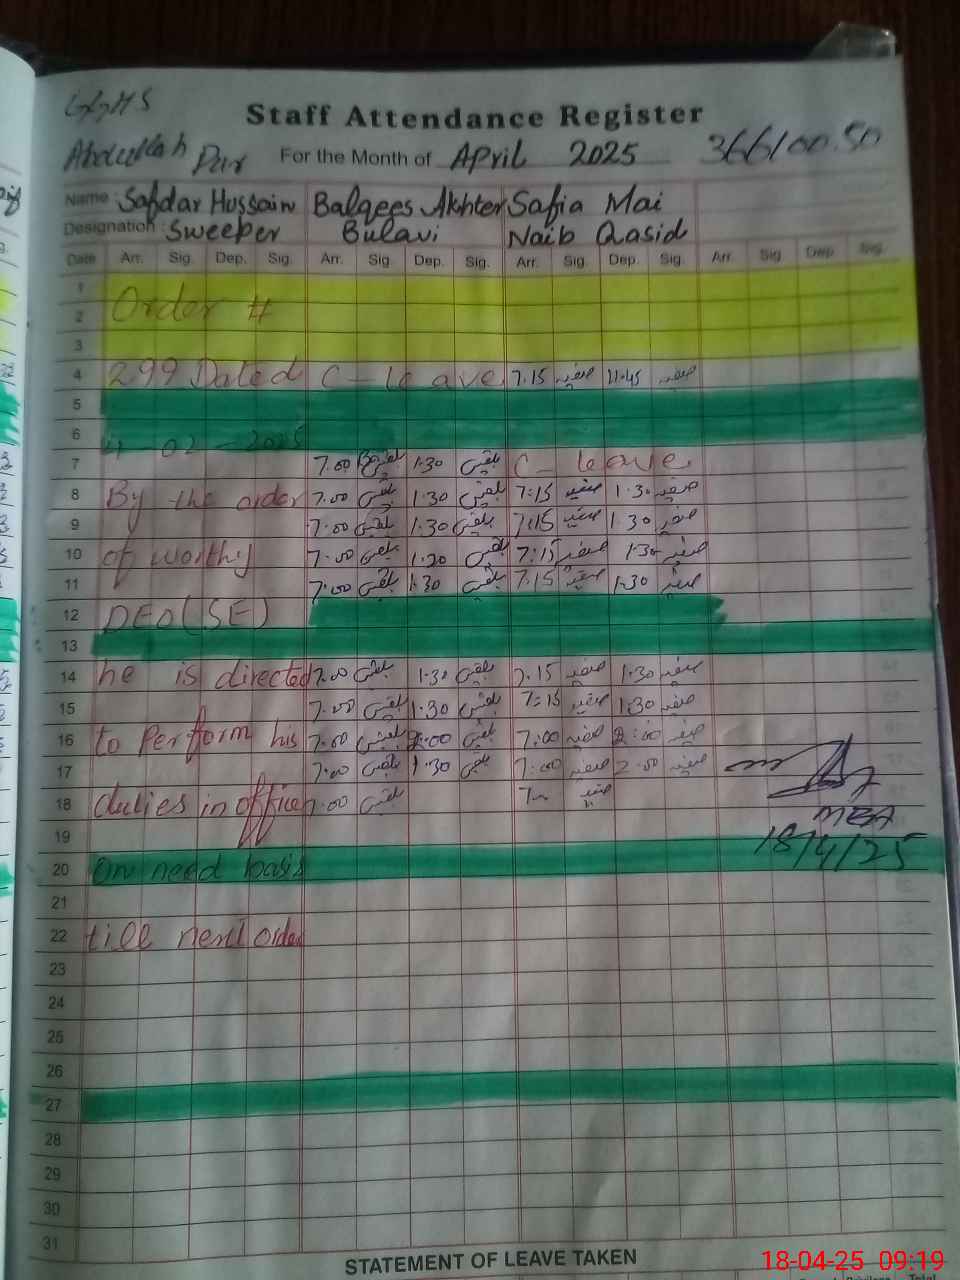 GGHS
Staff Attendance Register
Abdullah Pur For the Month of April 2025 36610050
Name Safdar Hussain Balqees Akhter Safia Mai
Designation : Sweeper Bulavi Naib Qasid
Date Arr. Sig. Dep. Sig. Arr. Sig. Dep. Sig. Arr. Sig. Dep. Sig. Arr. Sig. Dep. Sig.
1
2 Order #
3
4 299 Dated C-leave 7.15 صفیہ 11.45 صفیہ
5
6 4-02-2025
7 7.00 بلقیس 1.30 بلقیس C-leave
8 By the order 7.00 بلقیس 1.30 بلقیس 7:15 صفیہ 1.30 صفیہ
9 7.00 بلقیس 1.30 بلقیس 7:15 صفیہ 1.30 صفیہ
10 of worthy 7.00 بلقیس 1.30 بلقیس 7:15 صفیہ 1.30 صفیہ
11 7.00 بلقیس 1.30 بلقیس 7.15 صفیہ 1.30 صفیہ
12 DEO(SE)
13
14 he is directed 7.00 بلقیس 1.30 بلقیس 7.15 صفیہ 1.30 صفیہ
15 7.00 بلقیس 1.30 بلقیس 7:15 صفیہ 1.30 صفیہ
16 to Perform his 7.00 بلقیس 2:00 بلقیس 7:00 صفیہ 2:00 صفیہ
17 7.00 بلقیس 1.30 بلقیس 7:00 صفیہ 2.00 صفیہ
18 duties in office 7.00 بلقیس 7 صفیہ
MEA
19 18/4/25
20 on need basis
21
22 till next order
23
24
25
26
27
28
29
30
31
STATEMENT OF LEAVE TAKEN
18-04-25 09:19